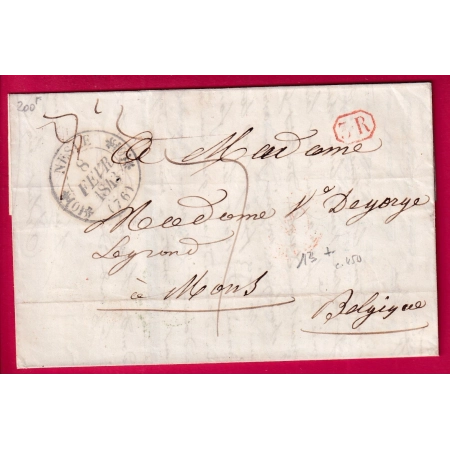 200
NESLE
8
FEVR
184
(76)
A Madame
Madame Ve Deyorge
Legrond
à Mons
Belgique
13 +
c.450